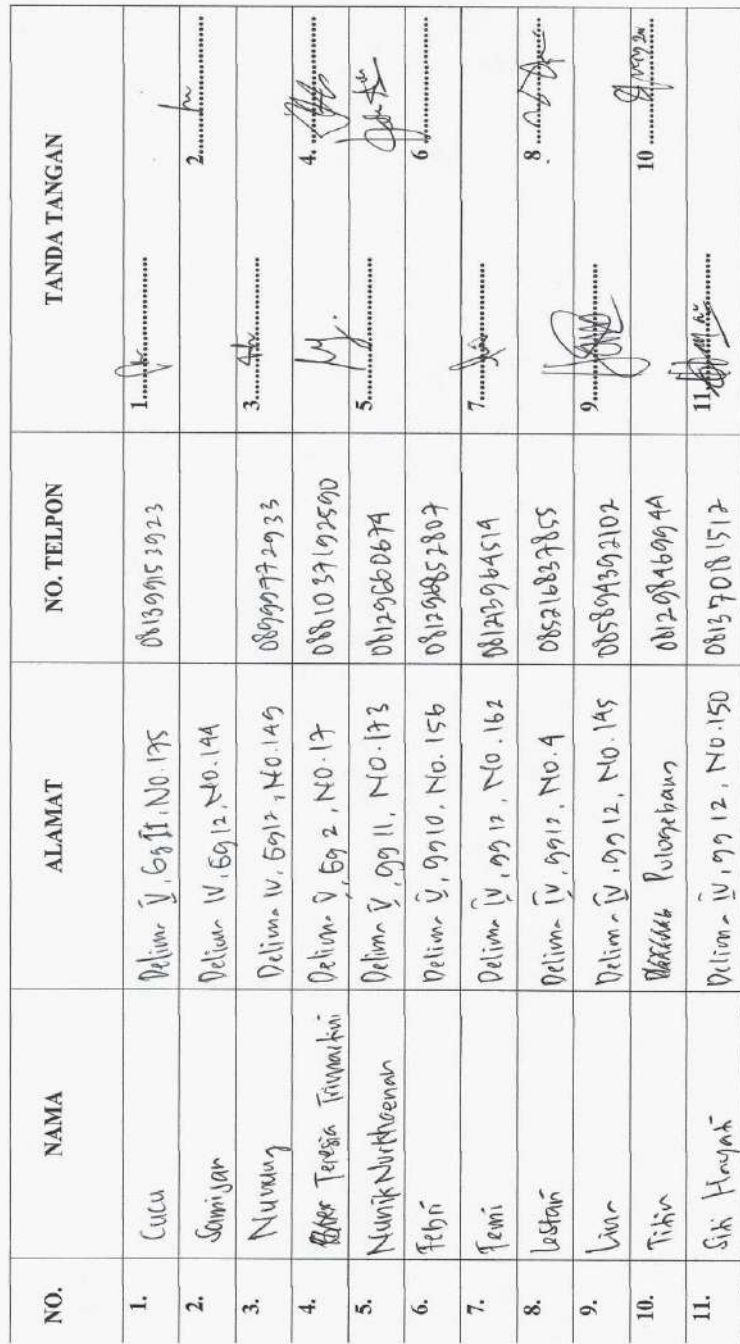 NO. NAMA ALAMAT NO. TELPON TANDA TANGAN
1. Cucu Delima V, Gg II, NO.175 081399153923 1.
2. Samijan Delima IV, Gg 12, NO.144 2.
3. Nunung Delima IV, Gg12, NO.149 089997772933 3.
4. Teresia Trimartini Delima V, Gg 2, NO.17 0881037192590 4.
5. Nunik Nurkhaenah Delima V, gg 11, NO.173 081296660674 5.
6. Febri Delima V, gg10, No.156 081296852807 6
7. Femi Delima IV, gg 12, NO.162 081213964514 7.
8. Lestari Delima IV, gg12, NO.4 085216837855 8
9. Lina Delima IV, gg 12, NO.145 085894392102 9.
10. Titin Pulogebang 081298469944 10
11. Siti Hayati Delima IV, gg 12, NO.150 081370181512 11.